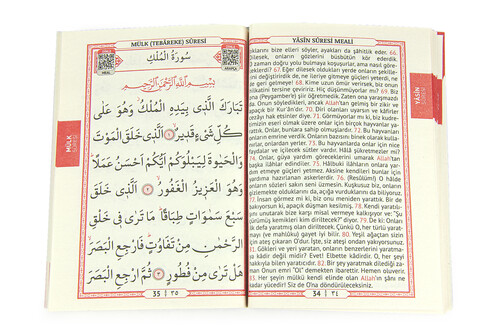 MÜLK (TEBÂREKE) SÛRESİ
سُورَةُ الْمُلْكِ
بِسْمِ اللّٰهِ الرَّحْمٰنِ الرَّحِيمِ
تَبَارَكَ الَّذِى بِيَدِهِ الْمُلْكُ وَهُوَ عَلٰى
كُلِّ شَىْءٍ قَدِيرٌ ﴿١﴾ اَلَّذِى خَلَقَ الْمَوْتَ
وَالْحَيٰوةَ لِيَبْلُوَكُمْ اَيُّكُمْ اَحْسَنُ عَمَلًا
وَهُوَ الْعَزِيزُ الْغَفُورُ ﴿٢﴾ اَلَّذِى خَلَقَ
سَبْعَ سَمٰوَاتٍ طِبَاقًا مَا تَرٰى فِى خَلْقِ
الرَّحْمٰنِ مِنْ تَفَاوُتٍ فَارْجِعِ الْبَصَرَ
هَلْ تَرٰى مِنْ فُطُورٍ ﴿٣﴾ ثُمَّ ارْجِعِ الْبَصَرَ
35 | ٣٥
MÜLK
SÛRESİ
YÂSÎN SÛRESİ MEALİ
yaptıklarını bize elleri söyler, ayakları da şâhitlik eder. 66.
O zaman doğru yolu bulmaya koşuşurlar, ama nasıl göre-
ceklerdi? 67. Eğer dileseydik oldukları yerde onların şekille-
rini değiştirirdik de, ne ileriye gitmeye güçleri yeterdi, ne
de geri gelmeye! 68. Kime uzun ömür verirsek, biz onun
hilkatini tersine çeviririz. Hiç düşünmüyorlar mı? 69. Biz
O'na (Peygamber'e) şiir öğretmedik. Zaten ona yaraşmazdı
da. Onun söyledikleri, ancak Allah'tan gelmiş bir zikir ve
apaçık bir Kur'ân'dır. 70. Diri olanları uyarsın ve kâfirler
cezayı hak etsinler diye. 71. Görmüyorlar mı ki, biz kudre-
timizin eseri olmak üzere onlar için birçok hayvanlar ya-
rattık. Onlar, bunlara sahip olmuşlardır. 72. Bu hayvanları
onların emrine verdik. Onların bazısını binek olarak kulla-
nırlar, bazısını yerler. 73. Bu hayvanlarda onlar için nice
faydalar ve içilecek sütler vardır. Hâlâ şükretmezler mi?
74. Onlar, güya yardım göreceklerini umarak Allah'tan
başka ilahlar edindiler. 75. Hâlbuki ilahların onlara yardım
etmeye güçleri yetmez. Aksine kendileri bunlar için
yardıma hazırlanan askerlerdir. 76. (Resûlüm!) O hâlde
onların sözleri sakın seni üzmesin. Kuşkusuz biz, onların
gizlemekte olduklarını da, açığa vurduklarını da biliyoruz.
77. İnsan görmez mi ki, biz onu meniden yarattık. Bir de
bakıyorsun ki, apaçık düşman kesilmiş. 78. Kendi yaratılı-
şını unutarak bize karşı misal vermeye kalkışıyor ve: "Şu
çürümüş kemikleri kim diriltecek?" diyor. 79. De ki: Onları
ilk defa yaratmış olan diriltecek. Çünkü O, her türlü yarat-
mayı (ve mahlûku) gayet iyi bilir. 80. Yeşil ağaçtan sizin
için ateş çıkaran O'dur. İşte, siz ateşi ondan yakıyorsunuz.
81. Gökleri ve yeri yaratan, onların benzerlerini yaratma-
ya kâdir değil midir? Evet! Elbette kâdirdir. O, her şeyi
hakkıyla bilen yaratıcıdır. 82. Bir şey yaratmak dilediği za-
man Onun emri "Ol" demekten ibarettir. Hemen oluverir.
83. Her şeyin mülkü kendi elinde olan Allah'ın şânı ne
kadar yücedir! Siz de O'na döndürüleceksiniz.
34 | ٣٤
YÂSÎN
SÛRESİ